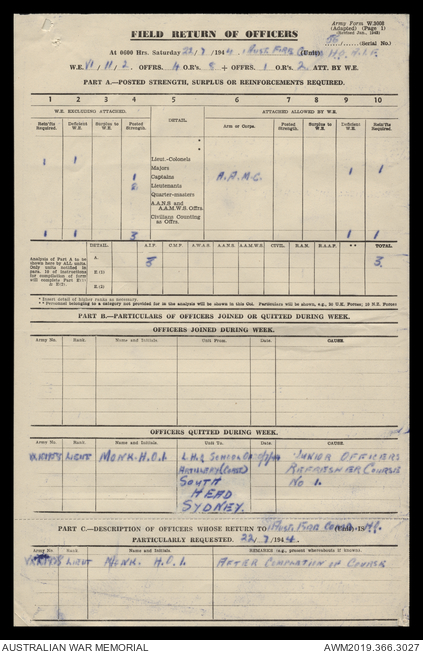 Army Form W.3008
(Adapted) (Page 1)
(Revised Jan., 1943)
FIELD RETURN OF OFFICERS
(Serial No.)
At 0600 Hrs. Saturday 22/7/1944 (Unit)
W.E. VI/11/2. OFFRS. 4 O.R's. 8 + OFFRS. 1 O.R's. 2 ATT. BY W.E.
PART A.—POSTED STRENGTH, SURPLUS OR REINFORCEMENTS REQUIRED.
1 2 3 4 5 6 7 8 9 10
W.E. EXCLUDING ATTACHED. DETAIL. ATTACHED ALLOWED BY W.E.
Rein'fts Required. Deficient W.E. Surplus to W.E. Posted Strength. Arm or Corps. Posted Strength. Surplus to W.E. Deficient W.E. Rein'fts Required.
1 1 Lieut.-Colonels
Majors 1 1
1 Captains A.A.M.C.
2 Lieutenants
Quarter-masters
A.A.N.S. and A.A.M.W.S. Offrs.
Civilians Counting as Offrs.
1 1 3 1 1
DETAIL. A.I.F. C.M.F. A.W.A.S. A.A.N.S. A.A.M.W.S. CIVIL. R.A.N. R.A.A.F. ** TOTAL
Analysis of Part A to be shown here by ALL units. Only units notified in para. 16 of Instructions for compilation of form will complete Part E(1) & E(2).
A. 3 3.
E (1)
E (2)
* Insert detail of higher ranks as necessary.
PART B.—PARTICULARS OF OFFICERS JOINED OR QUITTED DURING WEEK.
OFFICERS JOINED DURING WEEK.
Army No. Rank. Name and Initials. Unit From. Date. CAUSE.
OFFICERS QUITTED DURING WEEK.
Army No. Rank. Name and Initials. Unit To. Date. CAUSE.
LIEUT MONK. H.O.I. L.H.Q SCHOOL OF JUNIOR OFFICERS
ARTILLERY REFRESHER COURSE
SOUTH NO 1.
HEAD
SYDNEY.
PART C.—DESCRIPTION OF OFFICERS WHOSE RETURN TO (Unit) IS
PARTICULARLY REQUESTED. 22/7/1944.
Army No. Rank. Name and Initials. REMARKS (e.g., present whereabouts if known).
LIEUT MONK. H.O.I. AFTER COMPLETION OF COURSE
AUSTRALIAN WAR MEMORIAL
AWM2019.366.3027